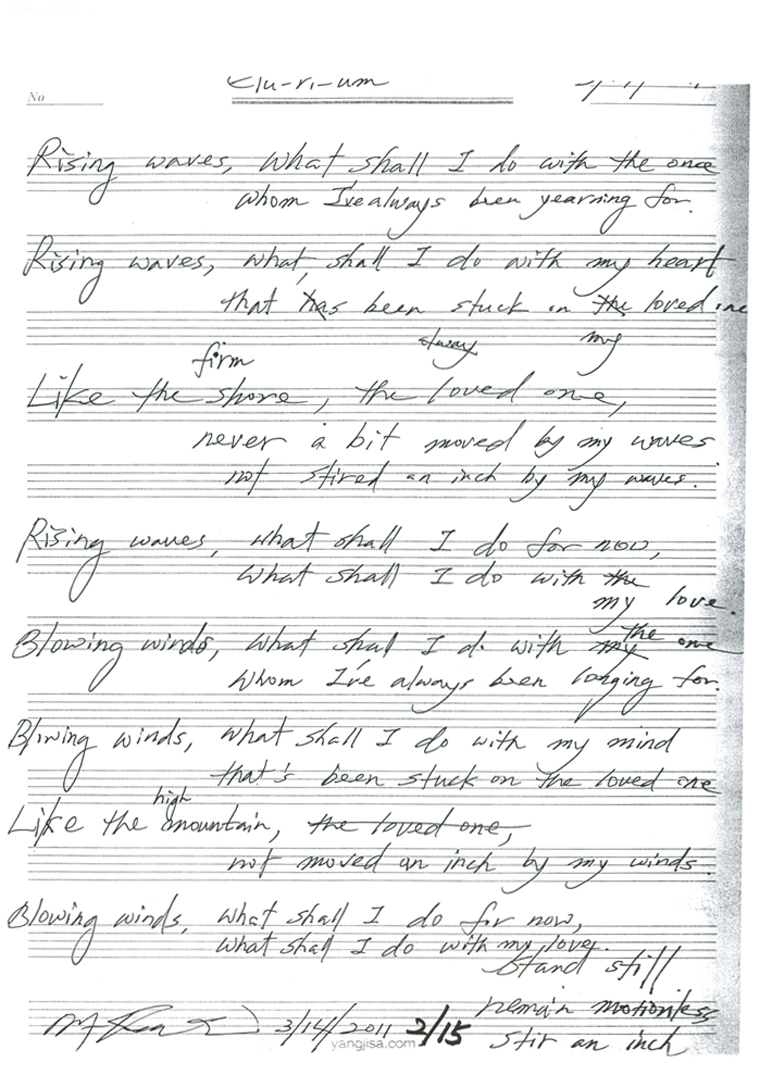 No
Rising waves, what shall I do with the once
whom I've always been yearning for.
Rising waves, what shall I do with my heart
that has been stuck on the loved one
always my
firm
Like the shore, the loved one,
never a bit moved by my waves
not stired an inch by my waves.
Rising waves, what shall I do for now,
what shall I do with the
my love.
the
Blowing winds, what shal I do with my one
whom I've always been longing for.
Blwing winds, what shall I do with my mind
that's been stuck on the loved one
high
Like the mountain, the loved one,
not moved an inch by my winds.
Blowing winds, what shall I do for now,
what shall I do with my love.
stand still
remain motionless
3/14/2011 2/15
stir an inch
yangjisa.com